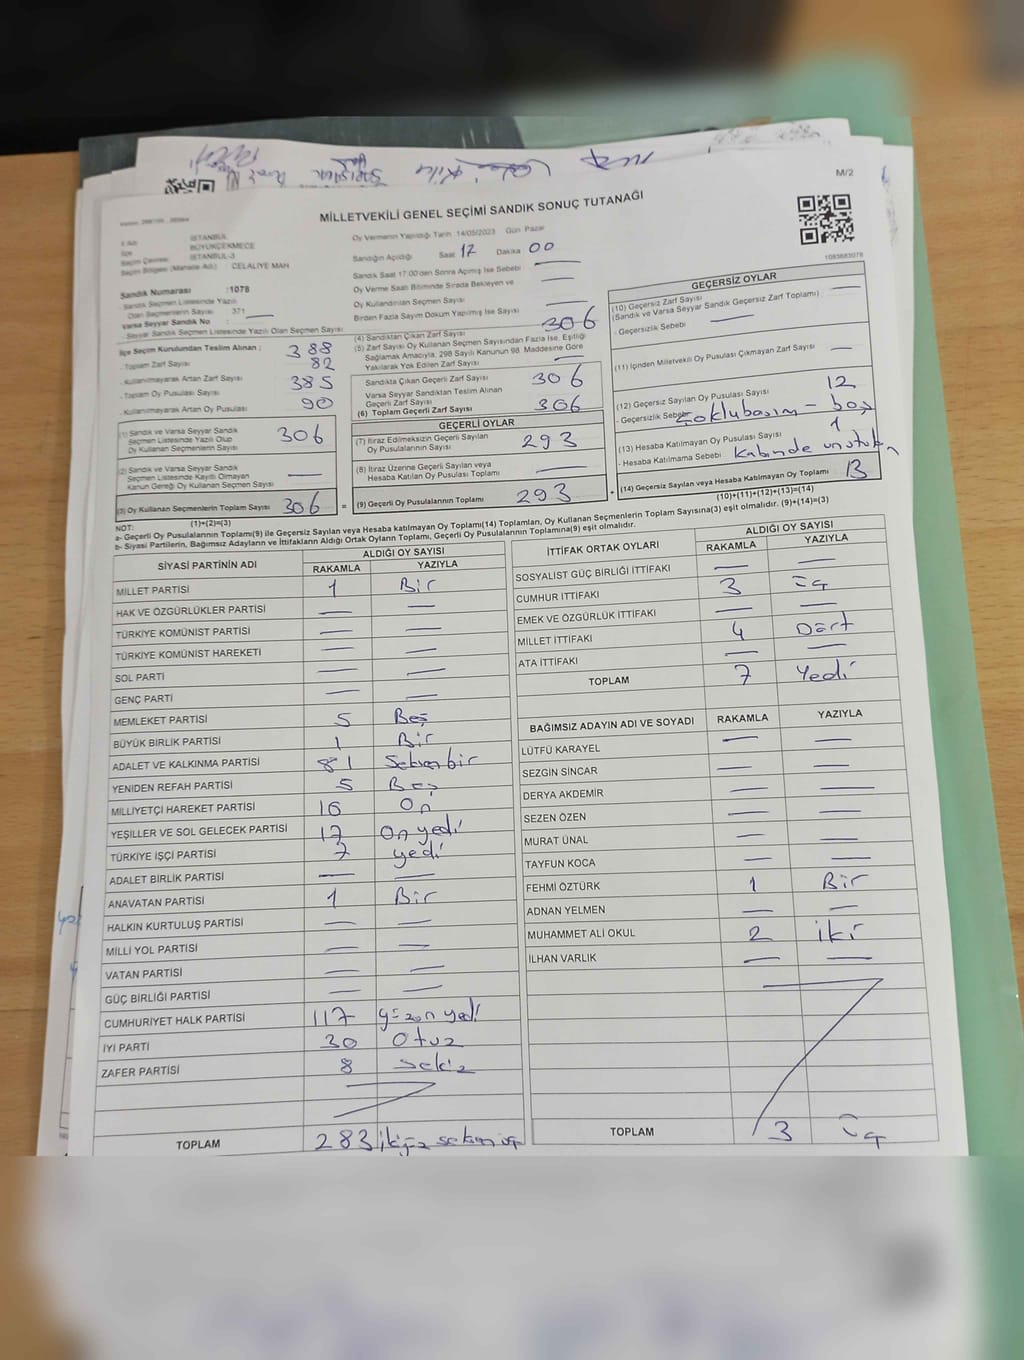 M/2
MİLLETVEKİLİ GENEL SEÇİMİ SANDIK SONUÇ TUTANAĞI
1083683078
İl Adı : İSTANBUL
İlçe : BÜYÜKÇEKMECE
Seçim Çevresi : İSTANBUL-3
Seçim Bölgesi (Mahalle Adı) : CELALİYE MAH
Sandık Numarası :1078
- Sandık Seçmen Listesinde Yazılı Olan Seçmenlerin Sayısı : 371
Varsa Seyyar Sandık No :
- Seyyar Sandık Seçmen Listesinde Yazılı Olan Seçmen Sayısı:
Oy Vermenin Yapıldığı Tarih :14/05/2023 Gün Pazar
Sandığın Açıldığı Saat 17 Dakika 00
Sandık Saat 17:00'den Sonra Açılmış İse Sebebi —
Oy Verme Saati Bitiminde Sırada Bekleyen ve —
Oy Kullandırılan Seçmen Sayısı
Birden Fazla Sayım Döküm Yapılmış İse Sayısı —
İlçe Seçim Kurulundan Teslim Alınan ;
- Toplam Zarf Sayısı 388
- Kullanılmayarak Artan Zarf Sayısı 82
- Toplam Oy Pusulası Sayısı 385
- Kullanılmayarak Artan Oy Pusulası 90
(1) Sandık ve Varsa Seyyar Sandık
Seçmen Listesinde Yazılı Olup
Oy Kullanan Seçmenlerin Sayısı 306
(2) Sandık ve Varsa Seyyar Sandık
Seçmen Listesinde Kayıtlı Olmayan
Kanun Gereği Oy Kullanan Seçmen Sayısı —
(3) Oy Kullanan Seçmenlerin Toplam Sayısı 306 =
(1)+(2)=(3)
(4) Sandıktan Çıkan Zarf Sayısı 306
(5) Zarf Sayısı Oy Kullanan Seçmen Sayısından Fazla İse, Eşitliği
Sağlamak Amacıyla; 298 Sayılı Kanunun 98. Maddesine Göre
Yakılarak Yok Edilen Zarf Sayısı —
Sandıkta Çıkan Geçerli Zarf Sayısı 306
Varsa Seyyar Sandıktan Teslim Alınan
Geçerli Zarf Sayısı —
(6) Toplam Geçerli Zarf Sayısı 306
GEÇERLİ OYLAR
(7) İtiraz Edilmeksizin Geçerli Sayılan
Oy Pusulalarının Sayısı 293
(8) İtiraz Üzerine Geçerli Sayılan veya
Hesaba Katılan Oy Pusulası Toplamı —
(9) Geçerli Oy Pusulalarının Toplamı 293 +
GEÇERSİZ OYLAR
(10) Geçersiz Zarf Sayısı
(Sandık ve Varsa Seyyar Sandık Geçersiz Zarf Toplamı) : —
- Geçersizlik Sebebi —
(11) İçinden Milletvekili Oy Pusulası Çıkmayan Zarf Sayısı —
(12) Geçersiz Sayılan Oy Pusulası Sayısı 12
- Geçersizlik Sebebi çoklubasım - boş
(13) Hesaba Katılmayan Oy Pusulası Sayısı 1
- Hesaba Katılmama Sebebi Kabinde unutuk
(14) Geçersiz Sayılan veya Hesaba Katılmayan Oy Toplamı 13
(10)+(11)+(12)+(13)=(14)
NOT:
a- Geçerli Oy Pusulalarının Toplamı(9) ile Geçersiz Sayılan veya Hesaba katılmayan Oy Toplamı(14) Toplamları, Oy Kullanan Seçmenlerin Toplam Sayısına(3) eşit olmalıdır. (9)+(14)=(3)
b- Siyasi Partilerin, Bağımsız Adayların ve İttifakların Aldığı Ortak Oyların Toplamı, Geçerli Oy Pusulalarının Toplamına(9) eşit olmalıdır.
SİYASİ PARTİNİN ADI ALDIĞI OY SAYISI
RAKAMLA YAZIYLA
MİLLET PARTİSİ 1 Bir
HAK VE ÖZGÜRLÜKLER PARTİSİ — —
TÜRKİYE KOMÜNİST PARTİSİ — —
TÜRKİYE KOMÜNİST HAREKETİ — —
SOL PARTİ — —
GENÇ PARTİ — —
MEMLEKET PARTİSİ 5 Beş
BÜYÜK BİRLİK PARTİSİ 1 Bir
ADALET VE KALKINMA PARTİSİ 81 Seksenbir
YENİDEN REFAH PARTİSİ 5 Beş
MİLLİYETÇİ HAREKET PARTİSİ 10 On
YEŞİLLER VE SOL GELECEK PARTİSİ 17 On yedi
TÜRKİYE İŞÇİ PARTİSİ 7 yedi
ADALET BİRLİK PARTİSİ — —
ANAVATAN PARTİSİ 1 Bir
HALKIN KURTULUŞ PARTİSİ — —
MİLLİ YOL PARTİSİ — —
VATAN PARTİSİ — —
GÜÇ BİRLİĞİ PARTİSİ — —
CUMHURİYET HALK PARTİSİ 117 yüzon yedi
İYİ PARTİ 30 Otuz
ZAFER PARTİSİ 8 sekiz
TOPLAM 283 ikiyüz seksen üç
İTTİFAK ORTAK OYLARI ALDIĞI OY SAYISI
RAKAMLA YAZIYLA
SOSYALİST GÜÇ BİRLİĞİ İTTİFAKI — —
CUMHUR İTTİFAKI 3 üç
EMEK VE ÖZGÜRLÜK İTTİFAKI — —
MİLLET İTTİFAKI 4 Dört
ATA İTTİFAKI — —
TOPLAM 7 Yedi
BAĞIMSIZ ADAYIN ADI VE SOYADI RAKAMLA YAZIYLA
LÜTFÜ KARAYEL — —
SEZGİN SİNCAR — —
DERYA AKDEMİR — —
SEZEN ÖZEN — —
MURAT ÜNAL — —
TAYFUN KOCA — —
FEHMİ ÖZTÜRK 1 Bir
ADNAN YELMEN — —
MUHAMMET ALİ OKUL 2 iki
İLHAN VARLIK — —
TOPLAM 3 üç